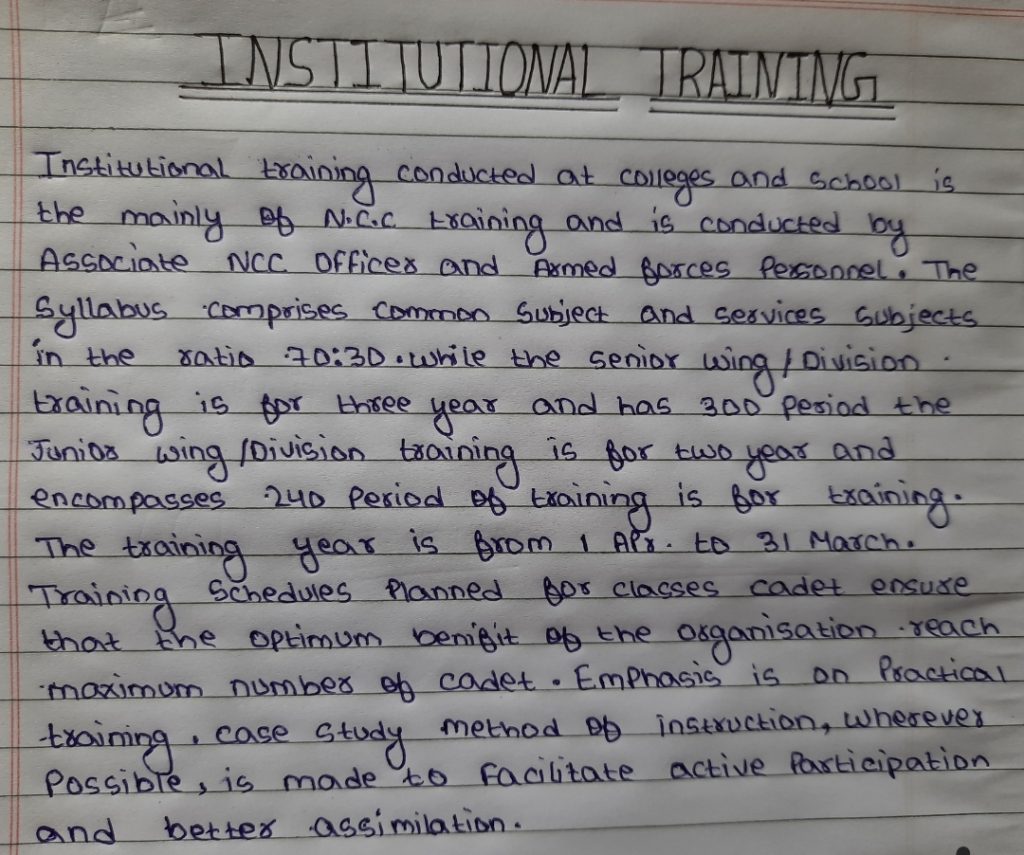 INSTITUTIONAL TRAINING
Institutional training conducted at colleges and school is
the mainly of N.C.C training and is conducted by
Associate NCC Officer and Armed forces Personnel. The
Syllabus comprises common Subject and services Subjects
in the ratio 70:30. while the senior wing / Division
training is for three year and has 300 Period the
Junior wing /Division training is for two year and
encompasses 240 Period of training is for training.
The training year is from 1 Apr. to 31 March.
Training Schedules Planned for classes cadet ensure
that the optimum benifit of the organisation reach
maximum number of cadet. Emphasis is on Practical
training. case Study method of instruction, wherever
Possible, is made to Facilitate active Participation
and better assimilation.